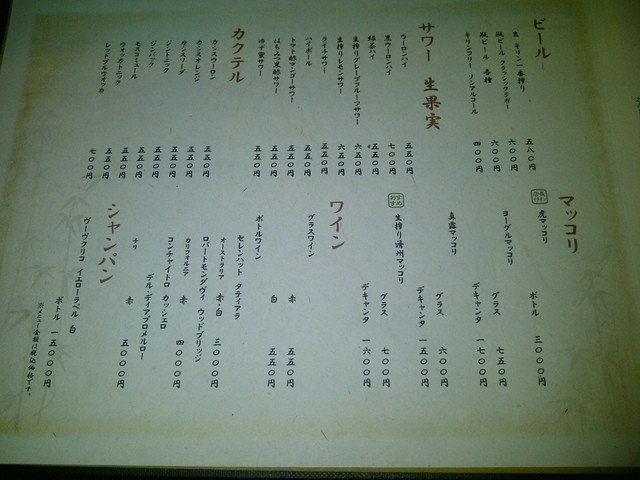 ビール
生 キリン一番搾り 五八〇円
瓶ビール クラシックラガー 六〇〇円
瓶ビール 各種 六〇〇円
キリンフリー ノンアルコール 四〇〇円
サワー 生果実
ウーロンハイ 五五〇円
黒ウーロンハイ 七〇〇円
緑茶ハイ 五五〇円
生搾りグレープフルーツサワー 六五〇円
生搾りレモンサワー 六五〇円
ライチサワー 五五〇円
ハイボール 五五〇円
トマト酢マンゴーサワー 五五〇円
はちみつ黒酢サワー 五五〇円
ゆず蜜サワー 五五〇円
カクテル
カシスウーロン 五五〇円
カシスオレンジ 五五〇円
カシスソーダ 五五〇円
ジントニック 五五〇円
ジンバック 五五〇円
モスコミュール 五五〇円
ウォッカトニック 五五〇円
レッドブルウォッカ 七〇〇円
マッコリ
虎マッコリ ボトル 三〇〇〇円
ヨーグルマッコリ グラス 七五〇円
デキャンタ 一七〇〇円
真露マッコリ グラス 六〇〇円
デキャンタ 一五〇〇円
おすすめ
生搾り済州マッコリ グラス 七〇〇円
デキャンタ 一六〇〇円
ワイン
グラスワイン 赤 五五〇円
白 五五〇円
ボトルワイン
セレンハット タティアラ
オーストラリア 赤・白 三〇〇〇円
ロバートモンダヴィ ウッドブリッジ
カリフォルニア 赤 四〇〇〇円
コンチャイトロ カッシェロ
デル・ディアブロメルロー
チリ 赤 五〇〇〇円
シャンパン
ヴーヴクリコ イエローラベル 白
ボトル 一五〇〇〇円
※メニュー金額は税込価格です。